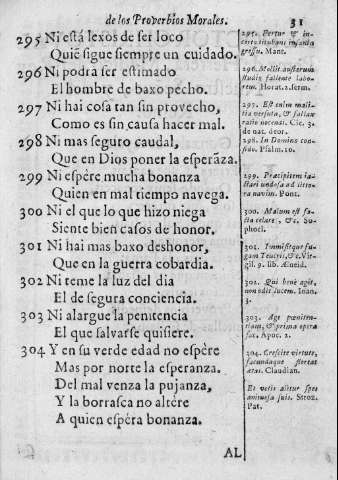 de los Proverbios Morales. 31
295 Ni está lexos de ser loco
Quiẽ sigue siempre un cuidado.
296 Ni podra ser estimado
El hombre de baxo pecho.
297 Ni hai cosa tan sin provecho,
Como es sin causa hacer mal.
298 Ni mas seguro caudal,
Que en Dios poner la esperãza.
299 Ni espére mucha bonanza
Quien en mal tiempo navega.
300 Ni el que lo que hizo niega
Siente bien casos de honor.
301 Ni hai mas baxo deshonor,
Que en la guerra cobardia.
302 Ni teme la luz del dia
El de segura conciencia.
303 Ni alargue la penitencia
El que salvarse quisiere.
304 Y en su verde edad no espére
Mas por norte la esperanza.
Del mal venza la pujanza,
Y la borrasca no altére
A quien espéra bonanza.
AL
295. Pertur & in
gressu. Mant.
296. Mollit austerum
studio fallente labo-
rem. Horat. 2. serm.
297. Est enim mali-
tia versuta, & fallax
ratio nocendi. Cic. 3.
de nat. deor.
298. In Domino con-
fido. Psalm. 10.
299. Præcipitem ja-
ctari undosa ad litto-
ra navim. Pont.
300. Malum est fa-
cta celare, &c. So-
phocl.
301. Immisitque fu-
gam Teucris, &c. Vir-
gil. 9. lib. Æneid.
302. Qui benè agit,
non odit lucem. Ioan.
3.
303. Age pœniten-
tiam, & prima opera
fac. Apoc. 2.
304. Crescite virtute,
facundaque floreat
ætas. Claudian.
Et vetis alitur spes
animosa suis. Stroz.
Pat.